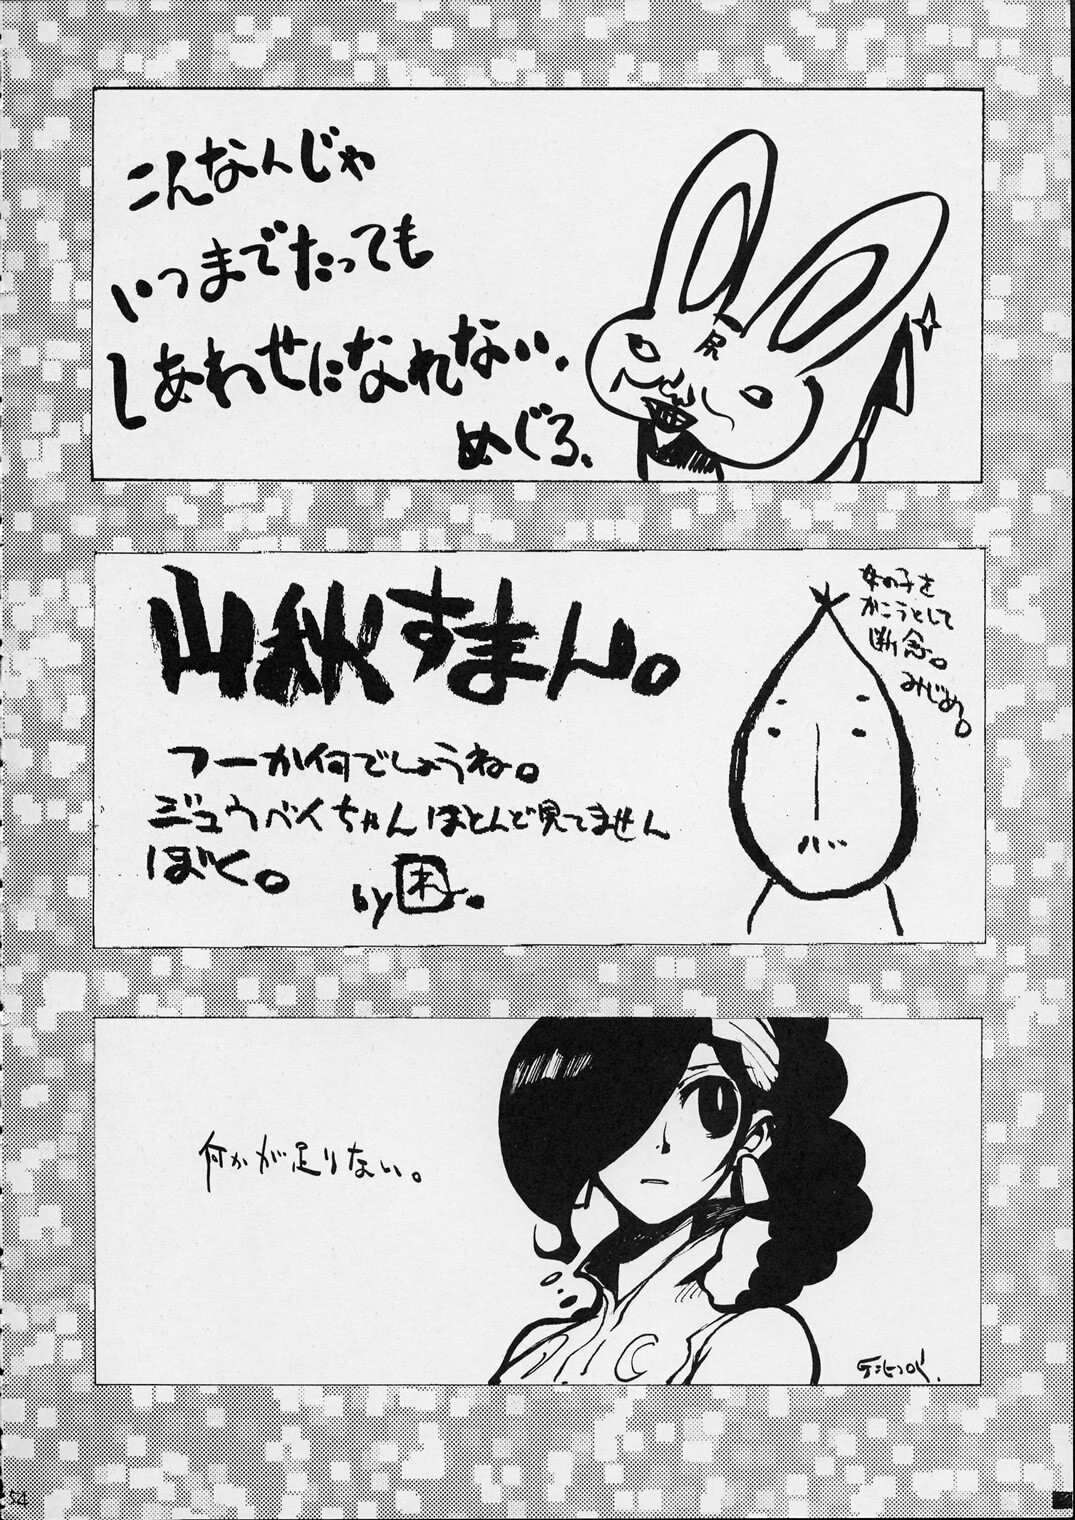 こんなんじゃ
いつまでたっても
しあわせになれない.
めぐろ.
尻
山秋すまん。
フーか何でしょうね。
ジュウベイちゃんほとんど見てません
ぼく。
by困。
女の子を
かこうとして
断念。
みじめ。
何かが足りない。
54